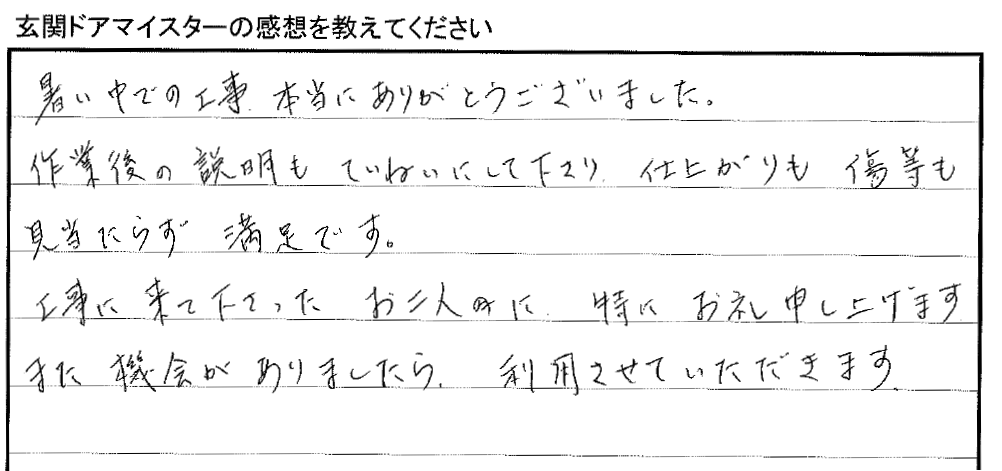 玄関ドアマイスターの感想を教えてください
暑い中での工事、本当にありがとうございました。
作業後の説明もていねいにして下さり、仕上がりも傷等も
見当たらず満足です。
工事に来て下さったお二人に、特にお礼申し上げます
また機会がありましたら、利用させていただきます。